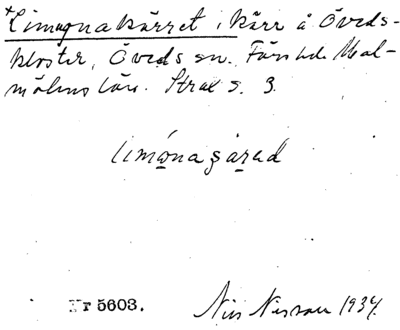 +Limugnakärret, kärr å Öveds-
kloster, Öveds sn. Färs hd. Mal-
möhus län. Strax s. 3.
limǫna şäṛad
Nr 5603. Nils Nilsson 1934.